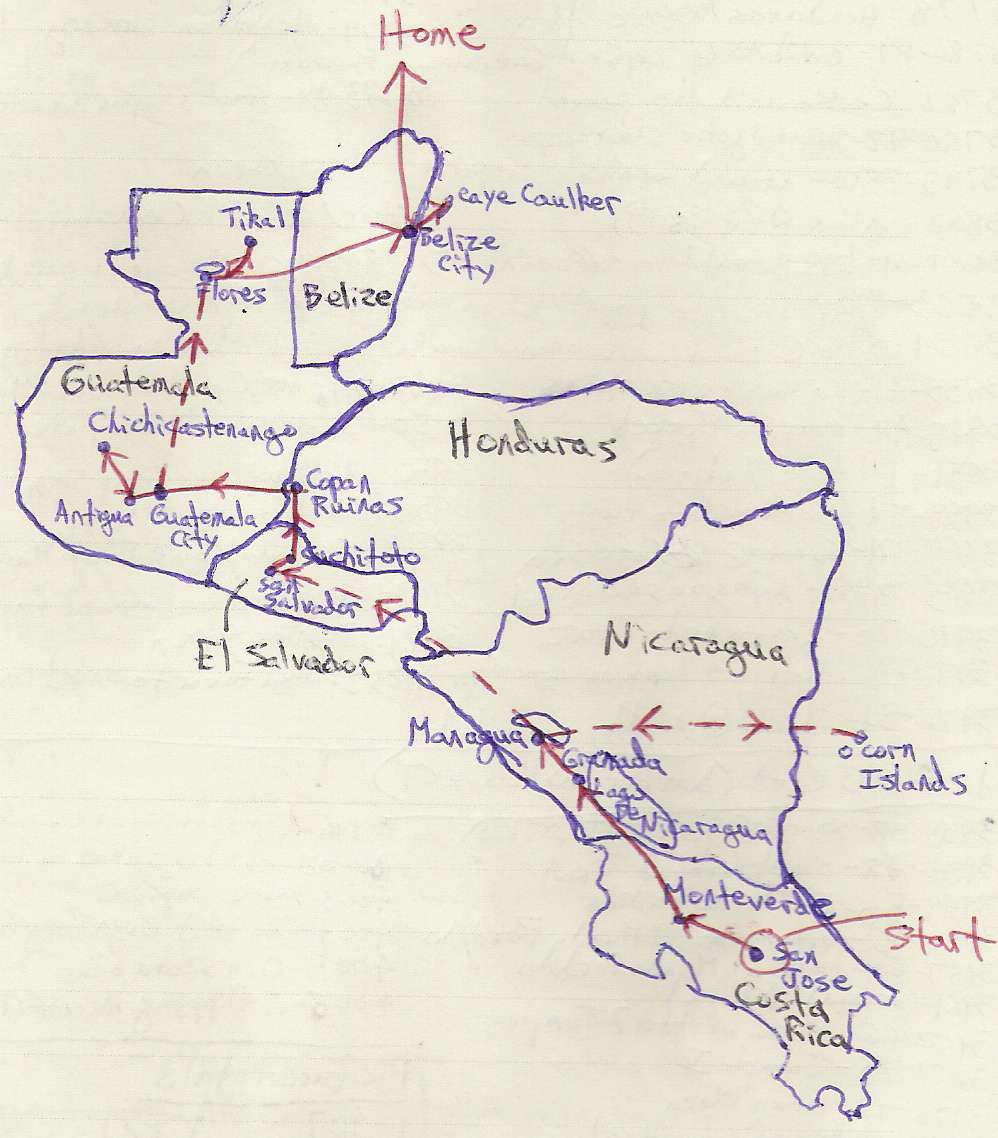 Home
Caye Caulker
Tikal
Belize
City
Flores
Belize
Guatemala
Chichicastenango
Honduras
Copan
Ruinas
Antigua
Guatemala
City
Suchitoto
San
Salvador
El Salvador
Nicaragua
Managua
Corn
Islands
Grenada
Lago
De Nicaragua
Monteverde
Start
San
Jose
Costa
Rica